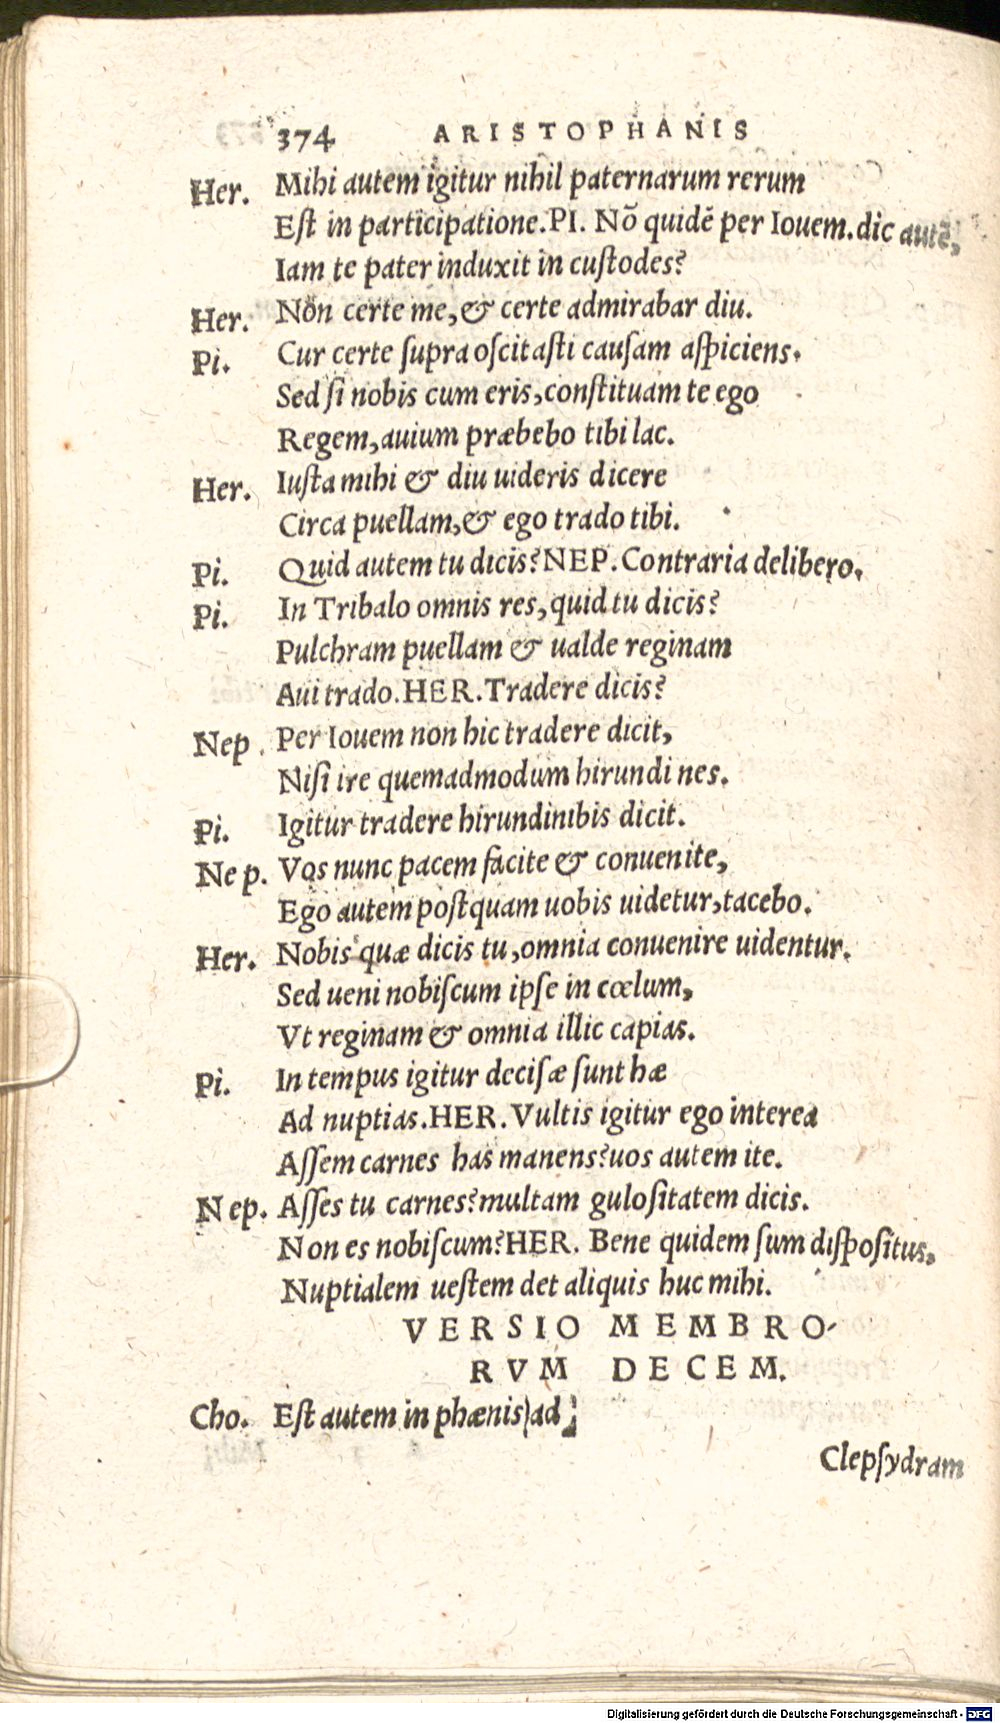 374 ARISTOPHANIS
Her. Mihi autem igitur nihil paternarum rerum
Est in participatione. PI. Nõ quidẽ per Iouem. dic autẽ,
Iam te pater induxit in custodes?
Her. Non certe me, & certe admirabar diu.
Pi. Cur certe supra oscitasti causam aspiciens.
Sed si nobis cum eris, constituam te ego
Regem, auium præbebo tibi lac.
Her. Iusta mihi & diu uideris dicere
Circa puellam, & ego trado tibi.
Pi. Quid autem tu dicis? NEP. Contraria delibero.
Pi. In Tribalo omnis res, quid tu dicis?
Pulchram puellam & ualde reginam
Aui trado. HER. Tradere dicis?
Nep. Per Iouem non hic tradere dicit,
Nisi ire quemadmodum hirundines.
Pi. Igitur tradere hirundinibis dicit.
Nep. Vos nunc pacem facite & conuenite,
Ego autem postquam uobis uidetur, tacebo.
Her. Nobis quæ dicis tu, omnia conuenire uidentur.
Sed ueni nobiscum ipse in cœlum,
Vt reginam & omnia illic capias.
Pi. In tempus igitur decisæ sunt hæ
Ad nuptias. HER. Vultis igitur ego interea
Assem carnes has manens? uos autem ite.
Nep. Asses tu carnes? multam gulositatem dicis.
Non es nobiscum? HER. Bene quidem sum dispositus.
Nuptialem uestem det aliquis huc mihi.
VERSIO MEMBRO-
RVM DECEM.
Cho. Est autem in phænis) ad
Clepsydram
Digitalisierung gefördert durch die Deutsche Forschungsgemeinschaft - DFG